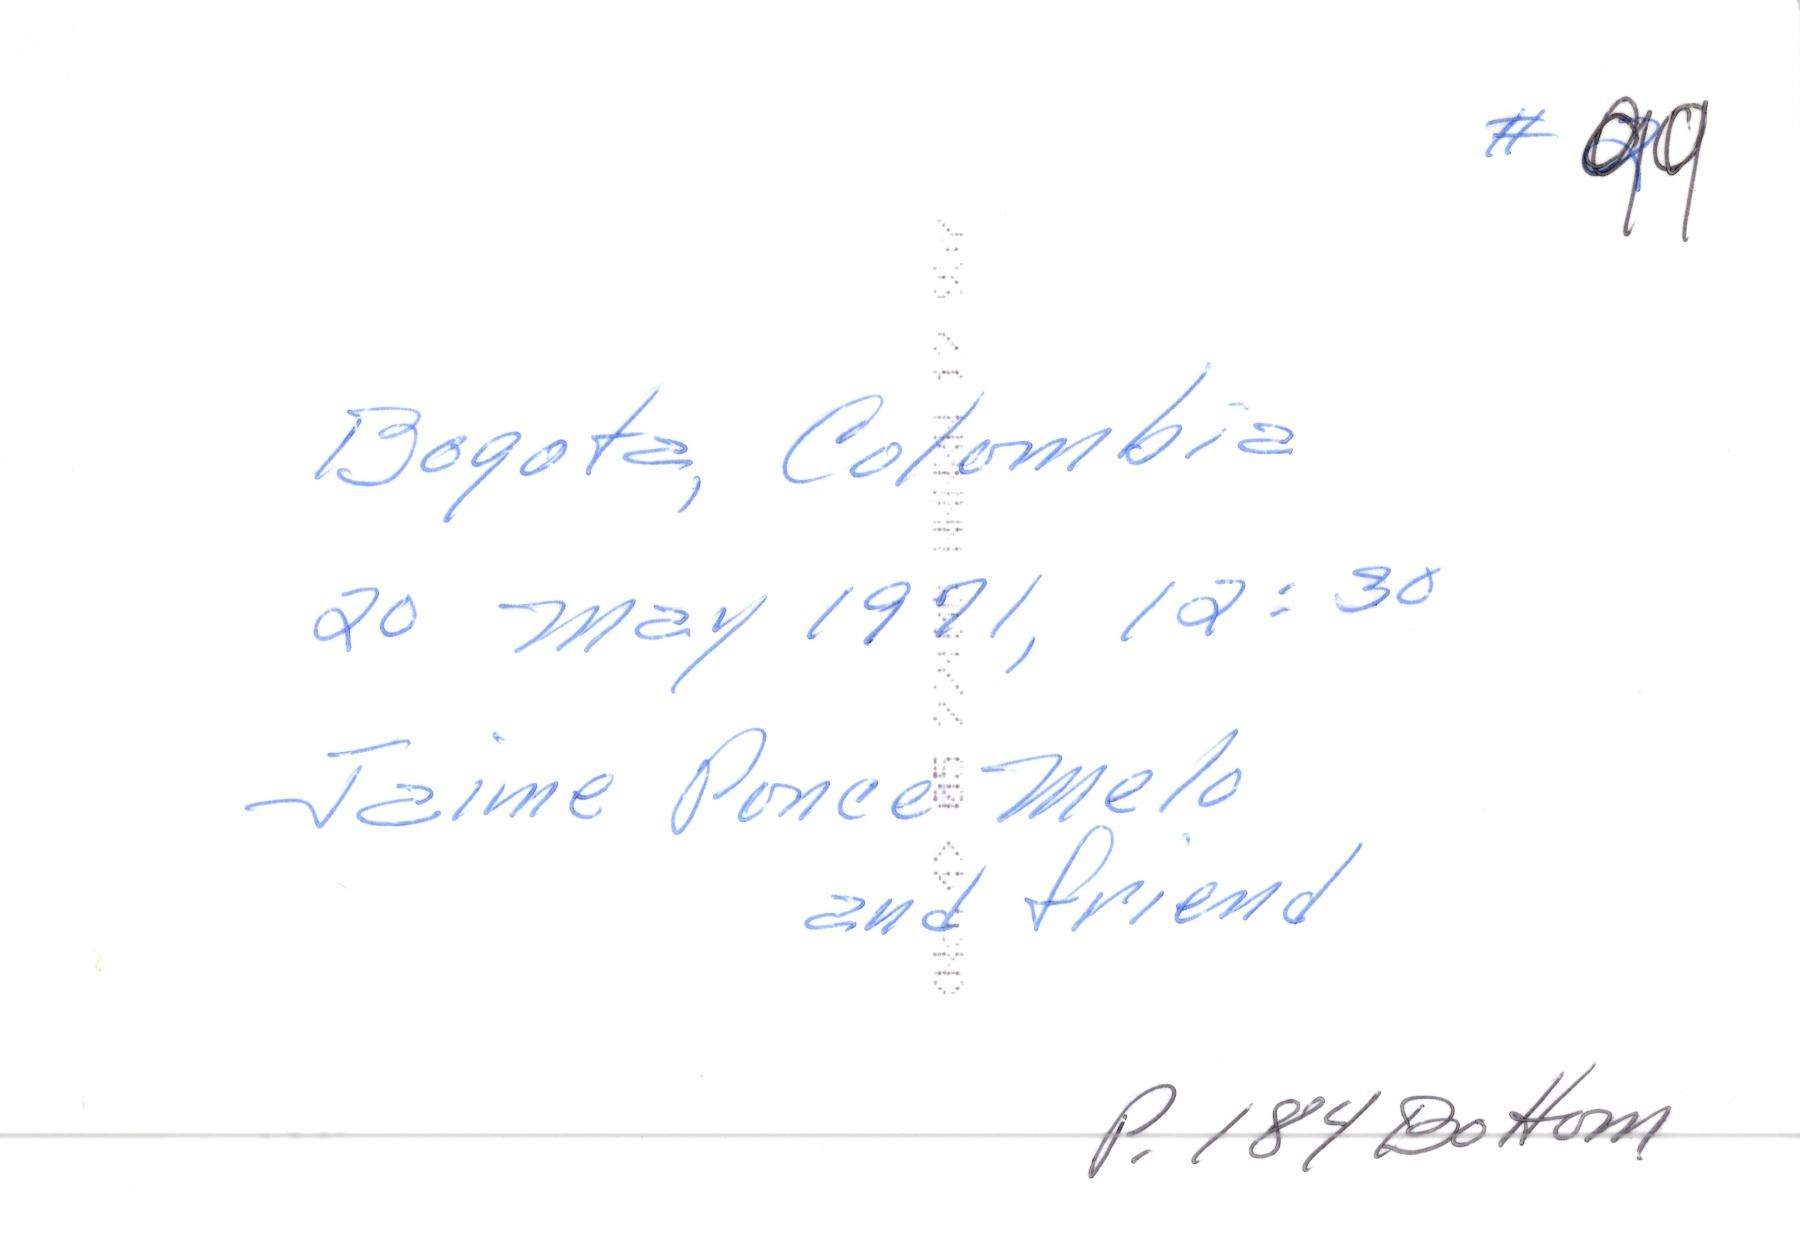 # 99
Bogota, Colombia
20 May 1971, 12:30
Jaime Ponce Melo
and friend
P. 184 Bottom